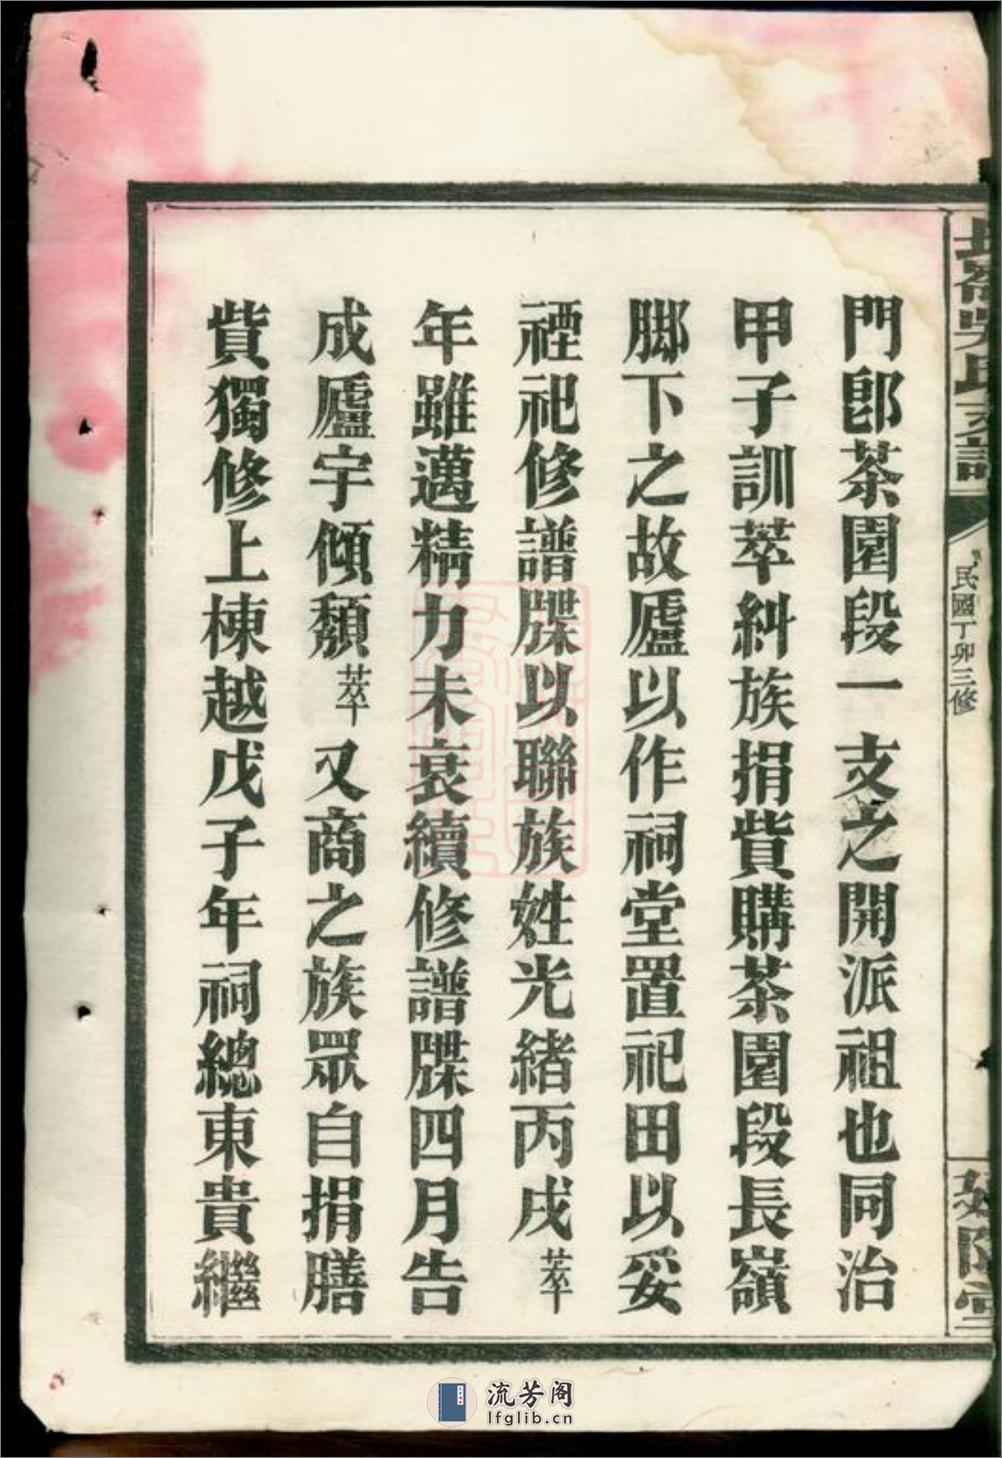 門郎茶園段一支之開派祖也同治
甲子訓萃糾族捐貲購茶園段長嶺
脚下之故廬以作祠堂置祀田以妥
禋祀修譜牒以聯族姓光緒丙戌萃
年雖邁精力未衰續修譜牒四月告
成廬宇傾頽萃又商之族眾自捐膳
貲獨修上棟越戊子年祠總東貴繼
吳氏支譜
民國丁卯三修
堂
流芳阁
lfglib.cn